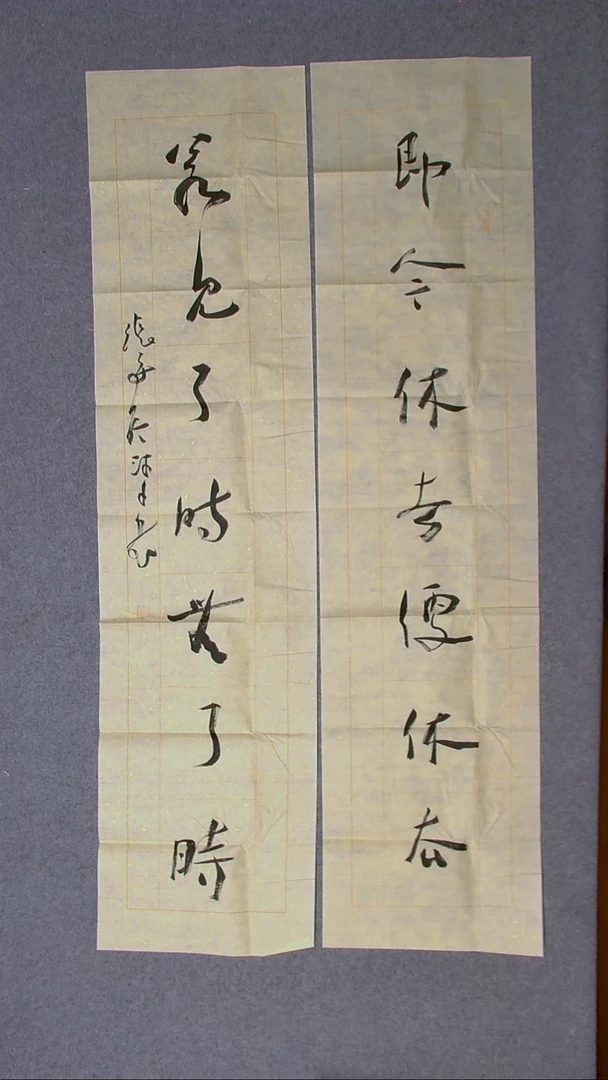 即今休去便休去
若見了時無了時